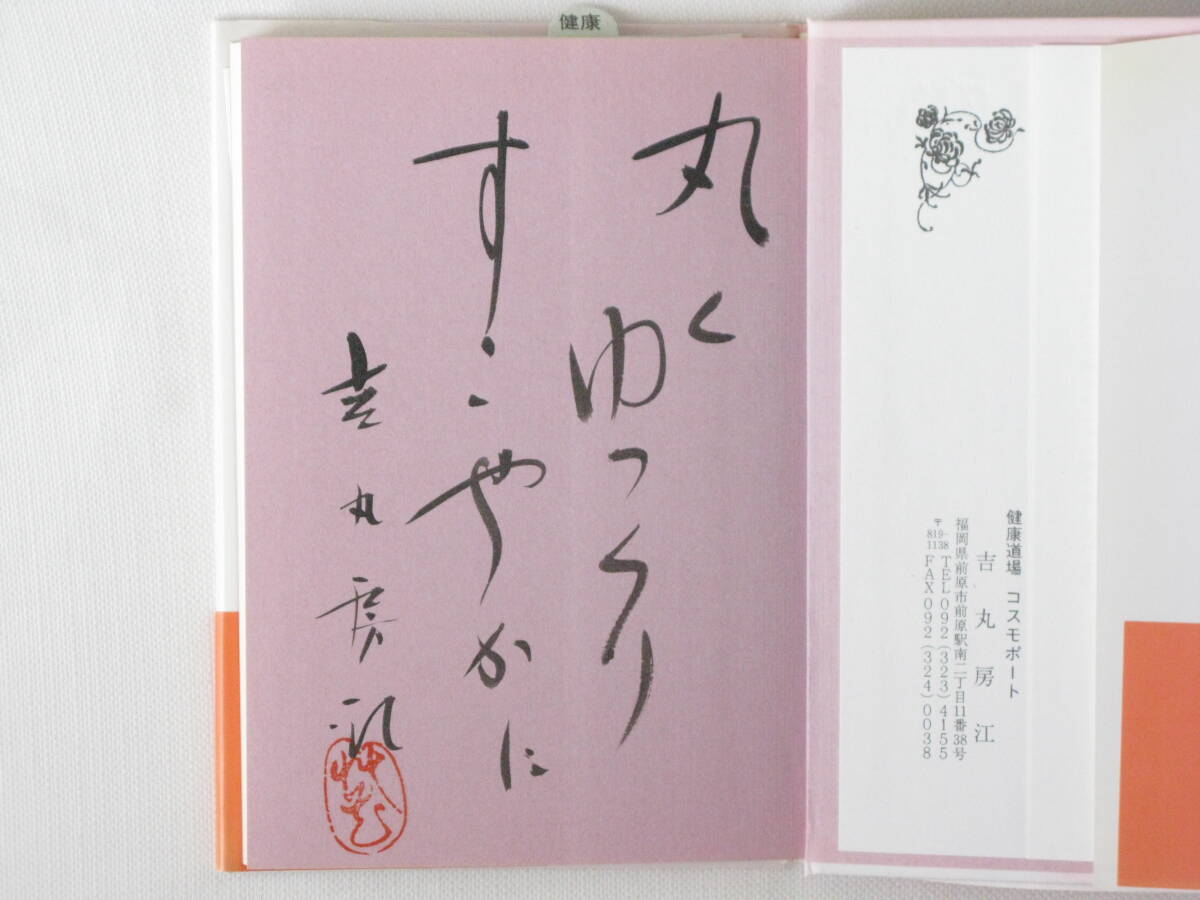 健康
丸く
ゆっくり
すこやかに
吉丸房江
健康道場 コスモポート
吉丸房江
福岡県前原市前原駅南二丁目11番38号
〒819-1138 TEL 092(323)4155
FAX 092(324)0038